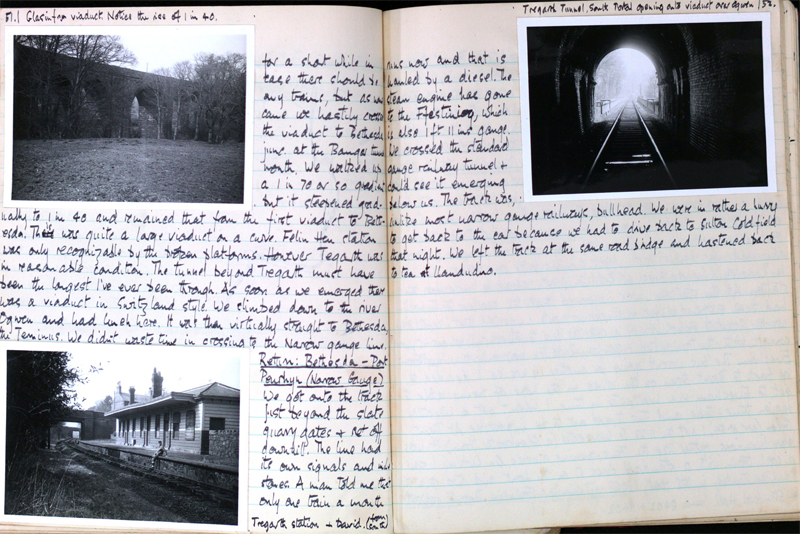 51.1 Glasinfryn viaduct. Notice the rise of 1 in 40.
for a short while in
case there should be
any trains, but as
came we hastily crossed
the viaduct to Bethesda
junc. at the Bangor tunnel
mouth. We walked up
a 1 in 70 or so gradient
but it steepened grad-
ually to 1 in 40 and remained that from the first viaduct to Beth-
esda. This was quite a large viaduct on a curve. Felin Hen station
was only recognizable by the broken platforms. However Tregarth was
in reasonable condition. The tunnel beyond Tregarth must have
been the longest I've ever been through. As soon as we emerged there
was a viaduct in Switzerland style. We climbed down to the river
Ogwen and had lunch here. It was then virtually straight to Bethesda,
the Terminus. We didn't waste time in crossing to the Narrow gauge line.
Return: Bethesda - Port
Penrhyn (Narrow Gauge)
We got onto the track
just beyond the slate
quarry gates & set off
downhill. The line had
its own signals and mile
stones. A man told me that
only one train a month
Tregarth station & David.
Tregarth Tunnel, South Portal opening onto viaduct over Ogwen /52.
runs now and that is
hauled by a diesel. The
steam engine has gone
to the Festiniog, which
is also 1 ft 11 ins gauge.
We crossed the standard
gauge railway tunnel &
could see it emerging
below us. The track was,
unlike most narrow gauge railways, bullhead. We were in rather a hurry
to get back to the car because we had to drive back to Sutton Coldfield
that night. We left the track at the same road bridge and hastened back
to tea at Llandudno.